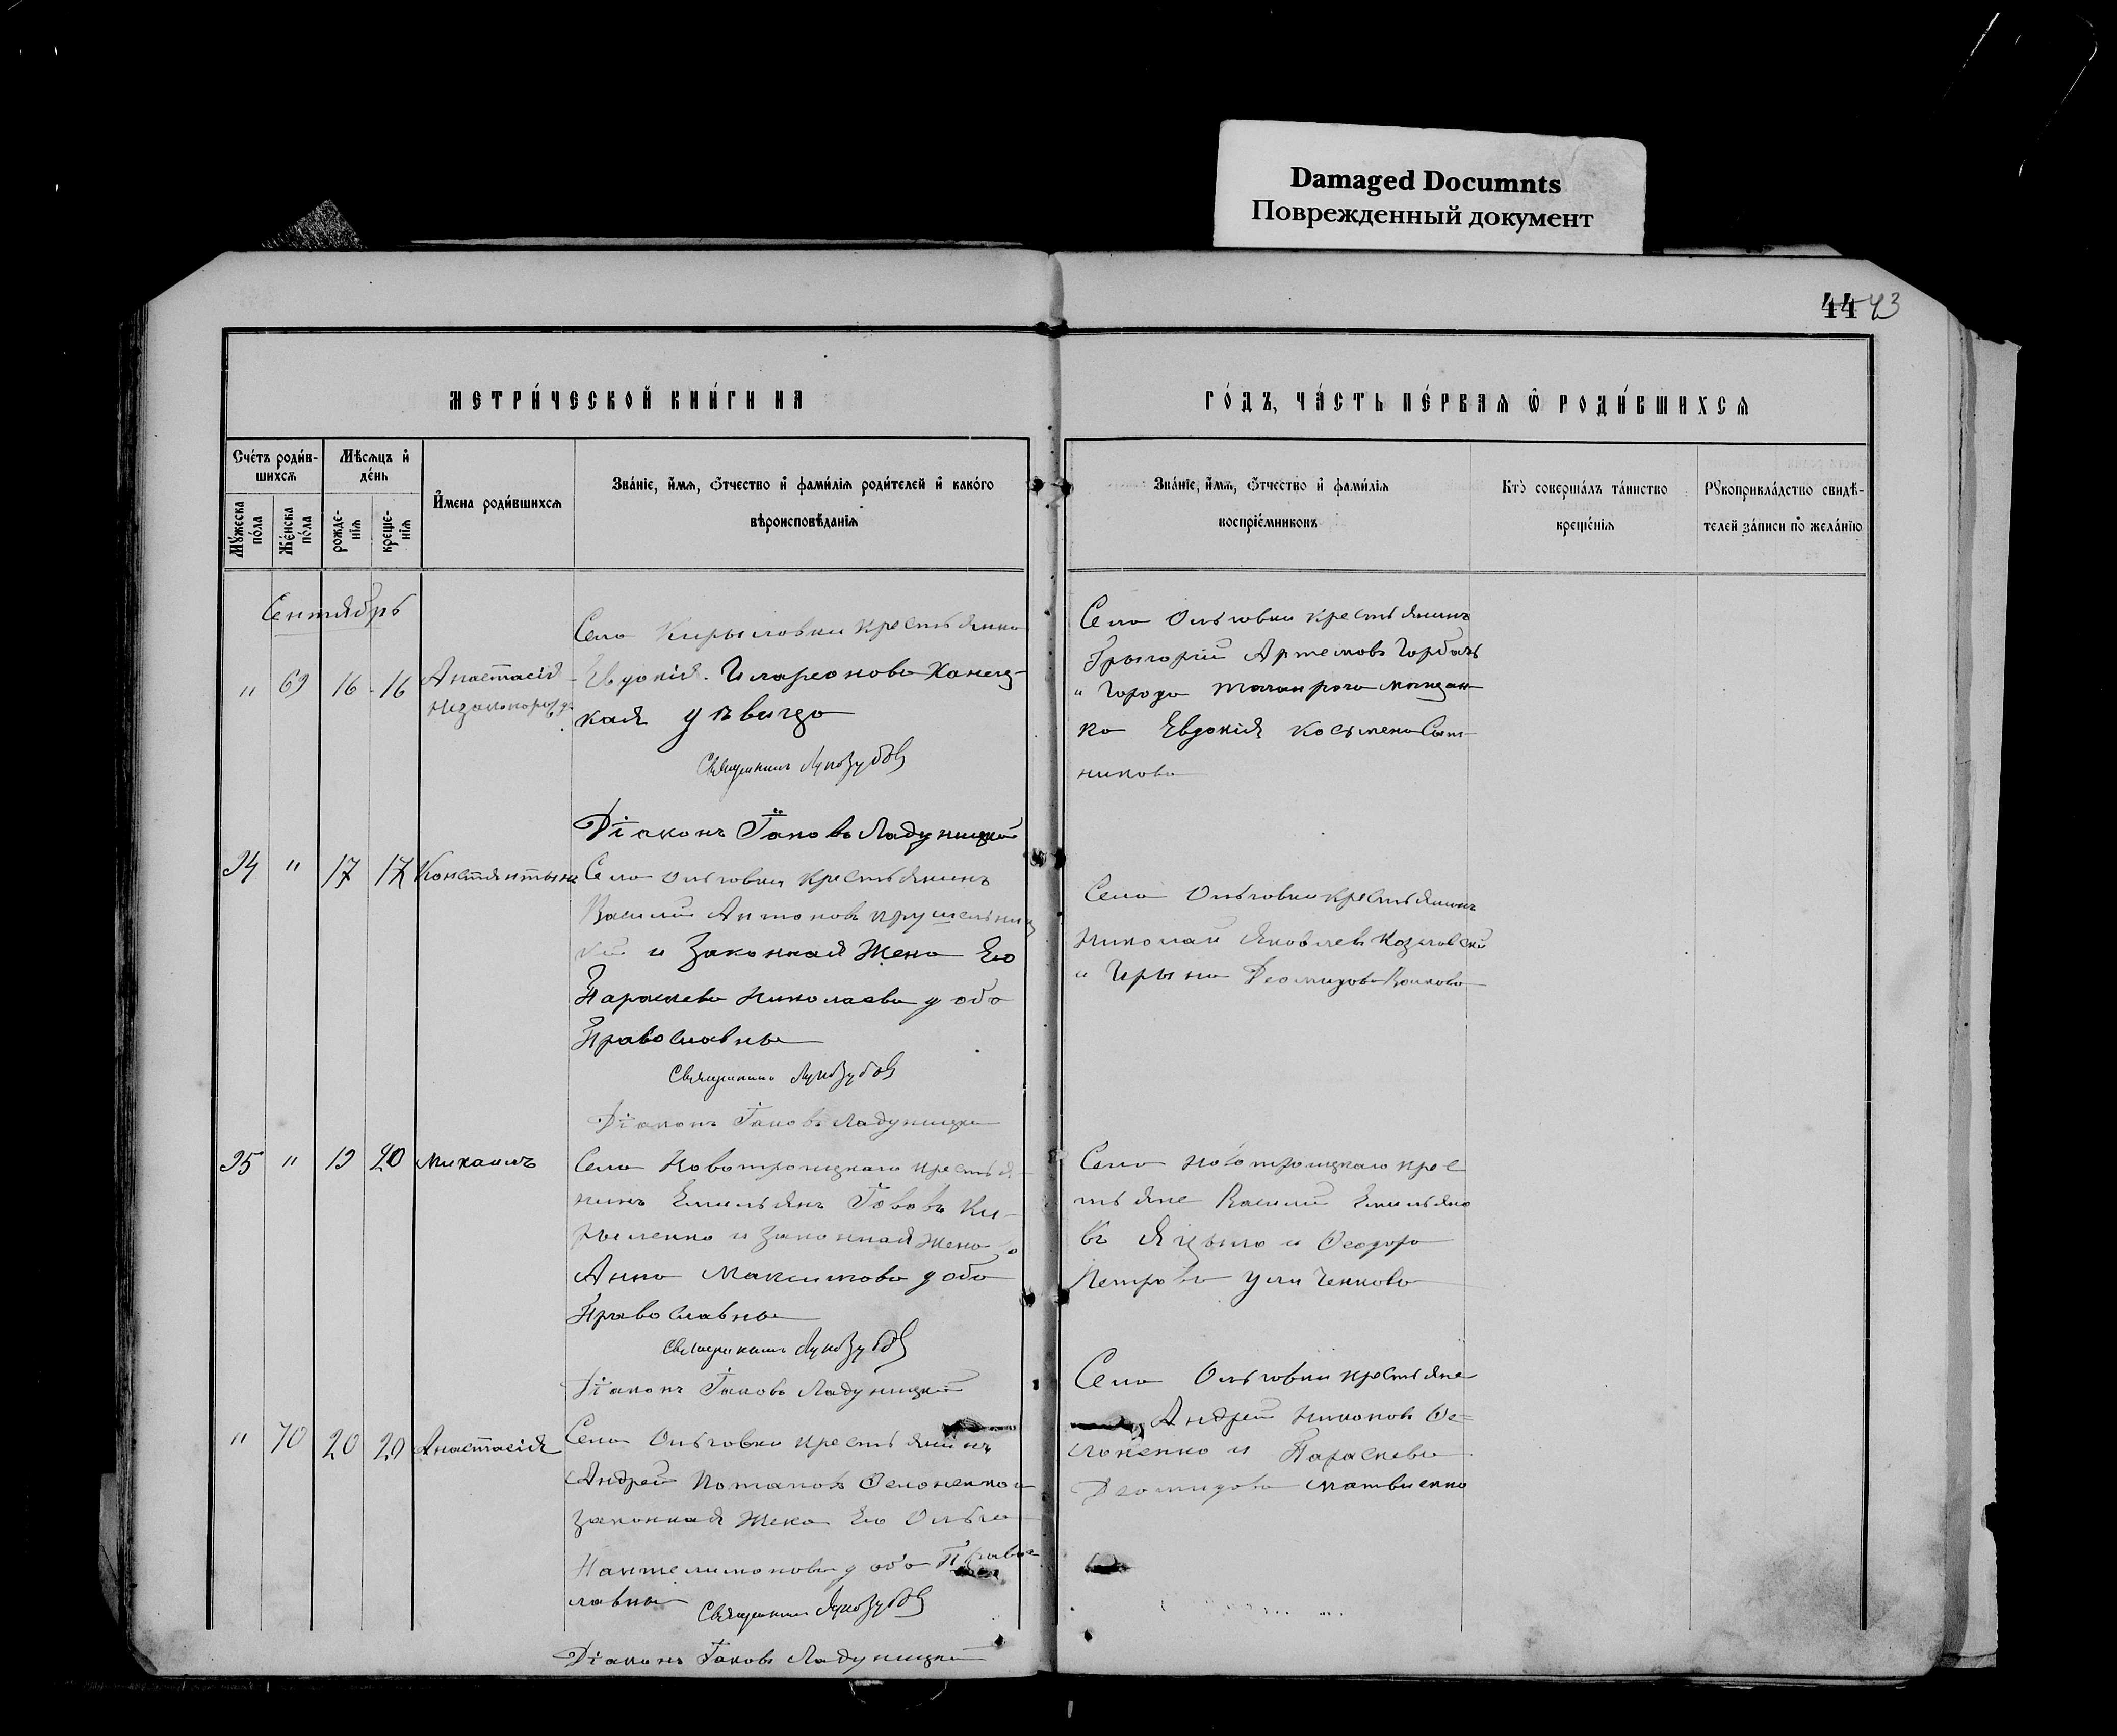 Damaged Documnts
Поврежденный документ
44 43
МЕТРИ́ЧЕСКОЙ КНИ́ГИ НА
ГО́ДЪ, ЧА́СТЬ ПЕ́РВАЯ Ѿ РОДИ́ВШИХСЯ
Сче́тъ роди́в-
шихсѧ
Мѣсѧцъ и҆
де́нь
Мꙋ́жеска по́ла
Же́нска по́ла
рожде-
нїѧ
креще-
нїѧ
И҆мена роди́вшихсѧ
Зва́нїе, и҆́мѧ, ѻ҆́тчество и҆ фами́лїѧ роди́телей и҆ како́го
вѣроисповѣ́данїѧ
Зва́нїе, и҆́мѧ, ѻ҆́тчество и҆ фами́лїѧ
воспрїе́мниковъ
Кто̀ соверша́лъ та́инство
креще́нїѧ
Рꙋкоприкла́дство свидѣ́-
телей за́писи по жела́нїю
Сентябрь
" 69 16 16 Анастасія
незаконорожд
Села Кирыловки крестьянка
Евдокія Илареонова Ханец-
кая дѣвица
Священникъ Лукозубовъ
Діаконъ Іаковъ Ладуницкій
Села Ольговки крестьянинъ
Грыгорій Артемовъ Горбань
и Города Таганрога мѣщан
ка Евдокія Косьмена Сит
никова
94 " 17 17 Константынъ
Села Ольговки крестьянинъ
Василій Антоновъ Крушельниц
кій и Законная Жена Его
Параскева Николаева у оба
Православны
Священникъ Лукозубовъ
Діаконъ Іаковъ Ладуницкій
Села Ольговки крестьянинъ
Николай Яковлевъ Козловскій
и Ирына Деомидова Волкова
95 " 19 20 Михаилъ
Села Новотроицкаго крестья-
нинъ Емильянъ Іововъ Ки-
рыленко и Законная Жена Его
Анна Максимова у оба
Православны
Священникъ Лукозубовъ
Діаконъ Іаковъ Ладуницкій
Села Новотроицкаго крес
тьяне Василій Емильяно
въ Яцыло и Феодора
Петрова
" 70 20 20 Анастасія
Села Ольговки крестьянинъ
Андрей Потаповъ Фелоненко и
Законная Жена Его Ольга
Пантелимонова у оба Правос
лавны Священникъ Лукозубовъ
Діаконъ Іаковъ Ладуницкій
Села Ольговки крестьяне
Андрей Никоновъ Фе-
лоненко и Параскева
Деомидова Матвиенко